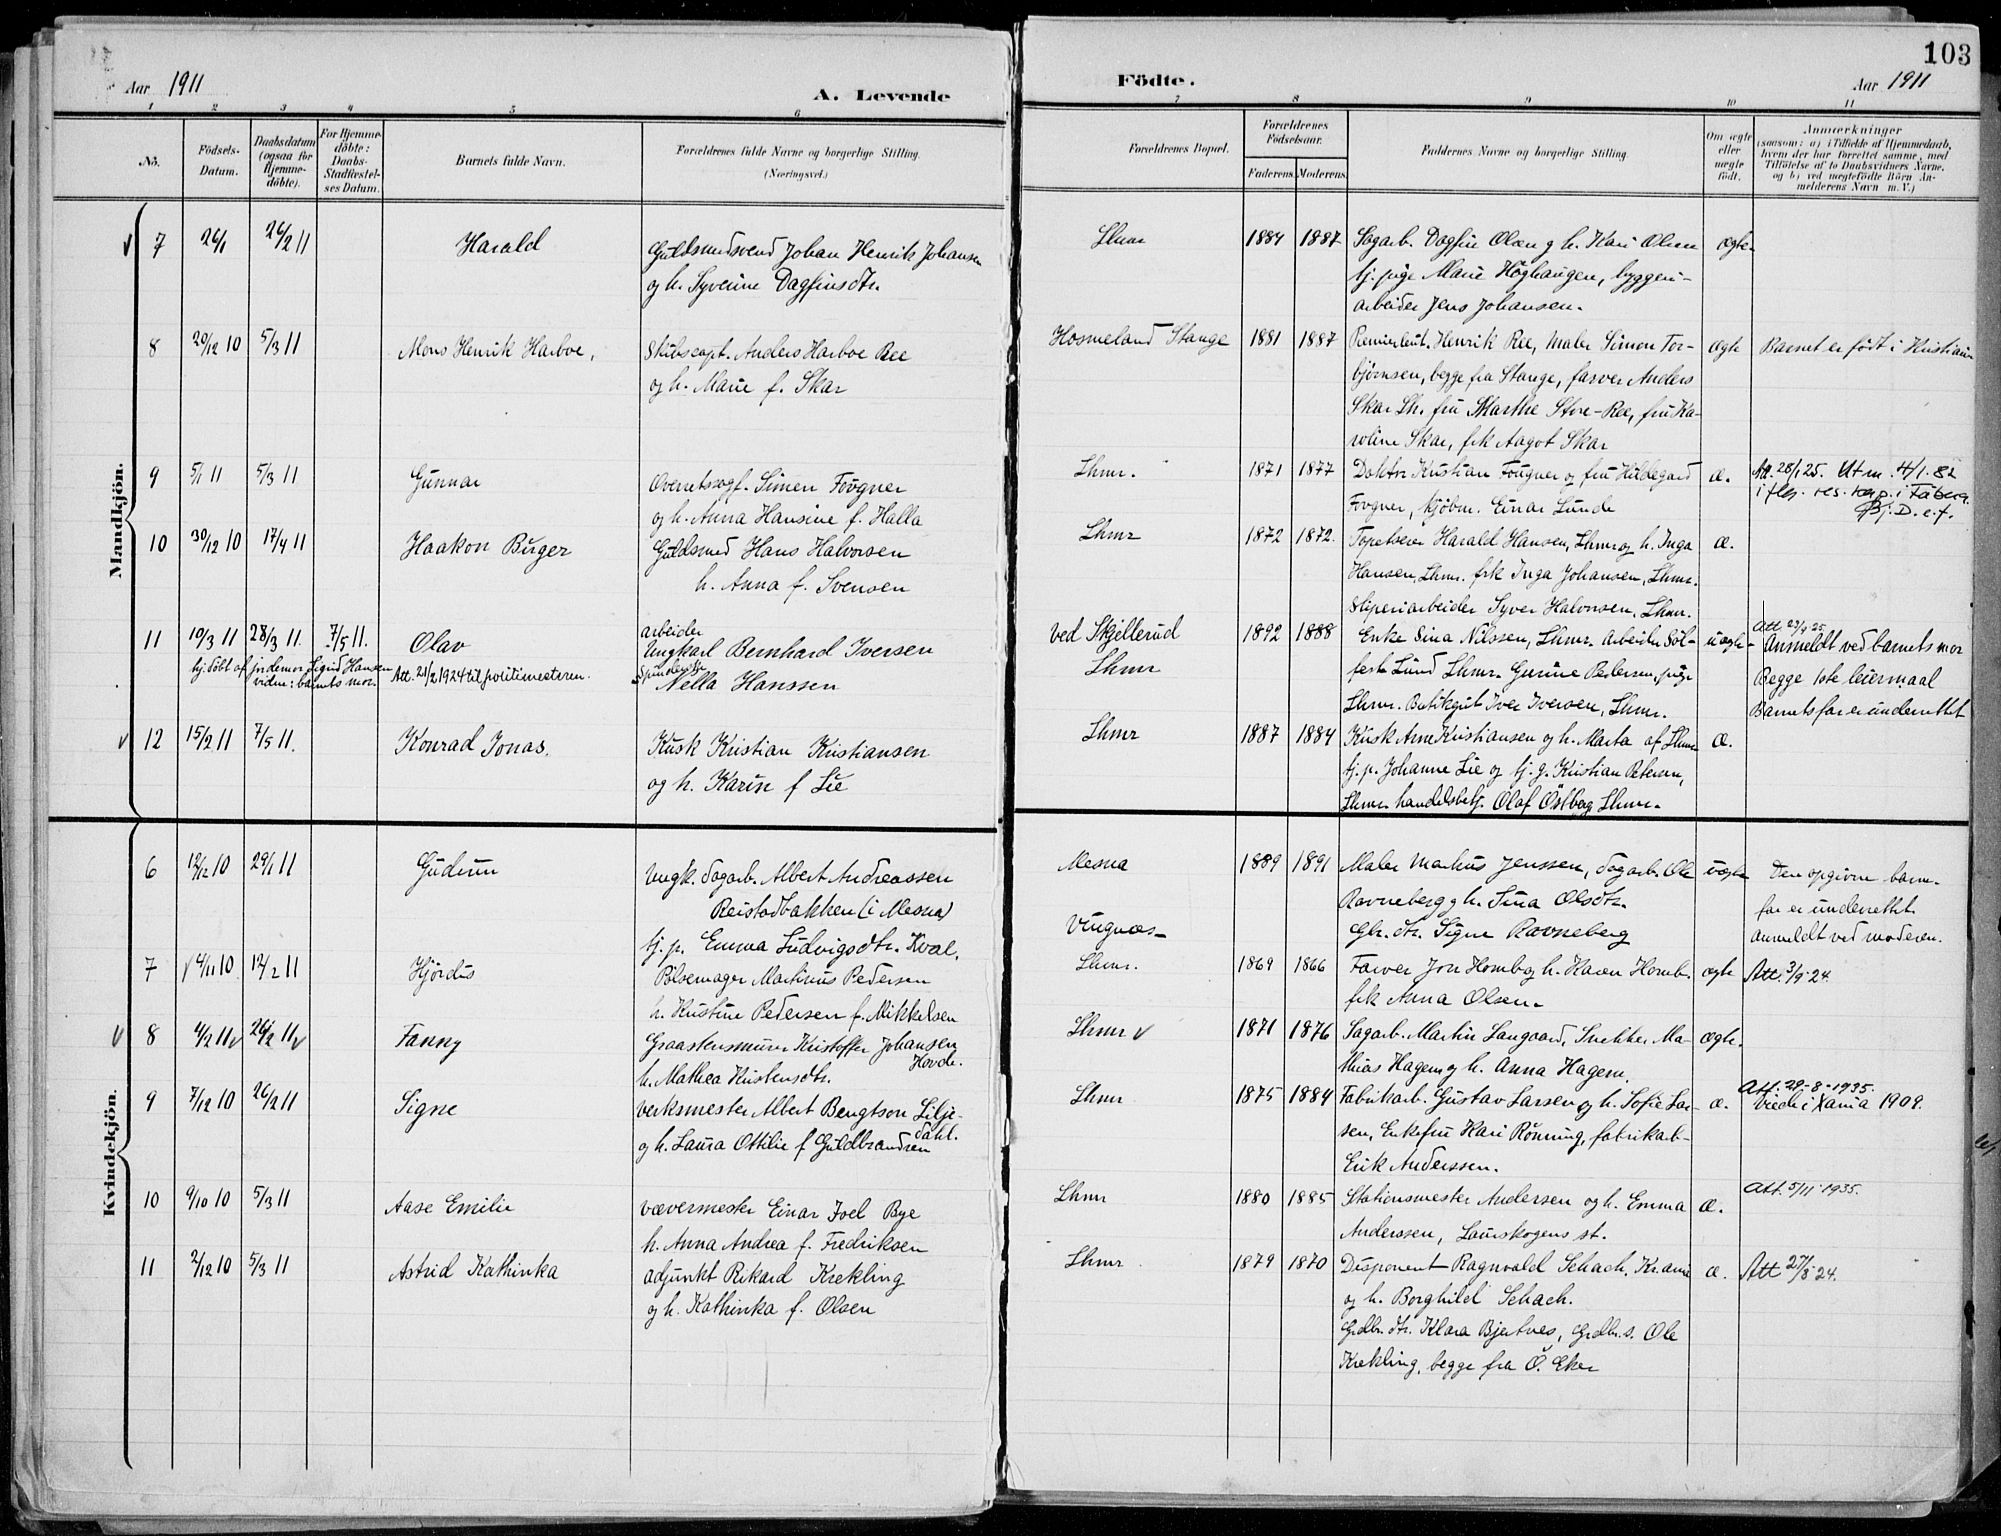 103
Aar 1911
A. Levende
Födte.
Aar 1911
1 2 3 4 5 6 7 8 9 10 11
No.
Födsels-Datum.
Daabsdatum (ogsaa for Hjemme-döbte).
For Hjemme-döbte: Daabs-Stadfæstel-ses Datum.
Barnets fulde Navn.
Forældrenes fulde Navne og borgerlige Stilling.
(Næringsvei.)
Forældrenes Bopæl.
Forældrenes Födselsaar.
Faderens. Moderens.
Faddernes Navne og borgerlige Stilling.
Om ægte eller uægte födt.
Anmærkninger
(saasom: a) i Tilfælde af Hjemmedaab,
hvem der har forrettet samme, med
Tilföielse af to Daabsvidners Navne,
og b) ved uægtefödte Börn An-
melderens Navn m. V.)
Mandkjön.
7 26/1 26/2 11 Harald
Guldsmedsvend Johan Henrik Johansen
og h. Syverine Dagfinsdtr.
Lhmr 1884 1887 Sagarb. Dagfin Olsen og h. Kari Olsen ægte
tj. pige Marie Höghaugen, byggeri-
arbeider Jens Johansen.
8 20/12 10 5/3 11 Mons Henrik Harboe,
Skibscapt. Anders Harboe Ree
og h. Marie f. Skar
Hosmeland Stange 1881 1887 Premierleut. Henrik Ree, Maler Simon Tor- ægte Barnet er födt i Kristiania
björnsen, begge fra Stange, farver Anders
Skar Lh. fru Marthe Store-Ree, fru Ka-
roline Skar, frk Aagot Skar
9 5/1 11 5/3 11 Gunnar
Overretssagf. Simen Fougner
og h. Anna Hansine f. Halla
Lhmr. 1871 1877 Doktor Kristian Fougner og fru Hildegard æ. Att. 28/1 25. Utm. 4/1-82
Fougner, kjöbm. Einar Lunde
i flg. res. kap. i Fåberg
10 30/12 10 17/4 11 Haakon Birger
Guldsmed Hans Halvorsen
h. Anna f. Svensen
Lhmr 1872 1872. Tapetserer Harald Hansen, Lhmr og h. Inga æ.
Hansen, Lhmr. frk Inga Johansen, Lhmr.
Sliperiarbeider Syver Halvorsen, Lhmr.
11 10/3 11 28/3 11. 7/5 11. Olav
hj. döbt af jordemor Sigrid Hansen
vidne: barnets mor.
Att. 21/2 1924 til politimesteren.
arbeider
Ungkarl Bernhard Iversen
Spinderske
Nella Hanssen
ved Skjellerud
Lhmr
1892 1888 Enke Sina Nilssen, Lhmr. Arbeider Söl- uægte
feste Lund Lhmr. Gurine Pedersen, pige
Lhmr. Butikgut Iver Iversen, Lhmr.
Anmeldt ved barnets mor
Begge 1ste leiermaal
Barnets far er underrettet
12 15/2 11 7/5 11. Konrad Jonas.
Kusk Kristian Kristiansen
og h. Karin f Lie
Lhmr 1887 1884 Kusk Arne Kristiansen og h. Marta af Lhmr æ.
tj. p. Johanne Lie og tj. g. Kristian Petersen,
Lhmr. handelsbetj. Olaf Östberg Lhmr.
Kvindekjön.
6 12/12 10 29/1 11 Gudrun
Ungk. Sagarb. Albert Andreassen
Reistadbakken (i Mesna)
tj. p. Emma Ludvigsdtr. Kval.
Mesna
Vingnæs
1889 1891 Maler Markus Jenssen, Sagarb. Ole uægte
Ravneberg og h. Tina Olsdtr.
Gbr. dtr. Signe Ravneberg
Den opgivne barne-
far er underrettet.
anmeldt ved moderen.
7 4/11 10. 12/2 11 Hjördis
Pölsemager Martinus Pedersen
h. Kristine Pedersen f. Mikkelsen
Lhmr. 1869 1866 Farver Jon Homb og h. Karen Homb. ægte Att. 3/9 24.
frk Anna Olsen.
8 4/2 11 26/2 11 Fanny
Graastensmurer Kristoffer Johansen
Hovde.
h. Mathea Kristensdtr.
Lhmr 1871 1876 Sagarb. Martin Langaard, Snekker Ma- ægte.
thias Hagem og h. Anna Hagem.
9 7/12 10 26/2 11 Signe
Verksmester Albert Bengtson Lilje-
dahl.
og h. Laura Ottilie f Guldbrandsen
Lhmr 1875 1884 Fabrikarb. Gustav Larsen og h. Sofie Lar- æ.
sen, Enkefru Kari Rönning, fabrikarb-
Erik Anderssen.
Att. 29-8-1935.
Viede i Xania 1909.
10 9/10 10 5/3 11 Aase Emilie
Vævermester Einar Joel Bye
h. Anna Andrea f. Fredriksen
Lhmr 1880 1885 Stationsmester Andersen og h. Emma æ. Att. 5/11 1935.
Anderssen, Laurskogens st.
11 2/12 10 5/3 11 Astrid Kathinka
adjunkt Rikard Krekling
og h. Kathinka f. Olsen
Lhmr 1879 1870 Disponent Ragnvald Schach, Krania æ. Att 27/8 24.
og h. Borghild Schach.
Grdbr. dtr. Klara Bjertnes, Grdbr. s. Ole
Krekling, begge fra Ö. Eker